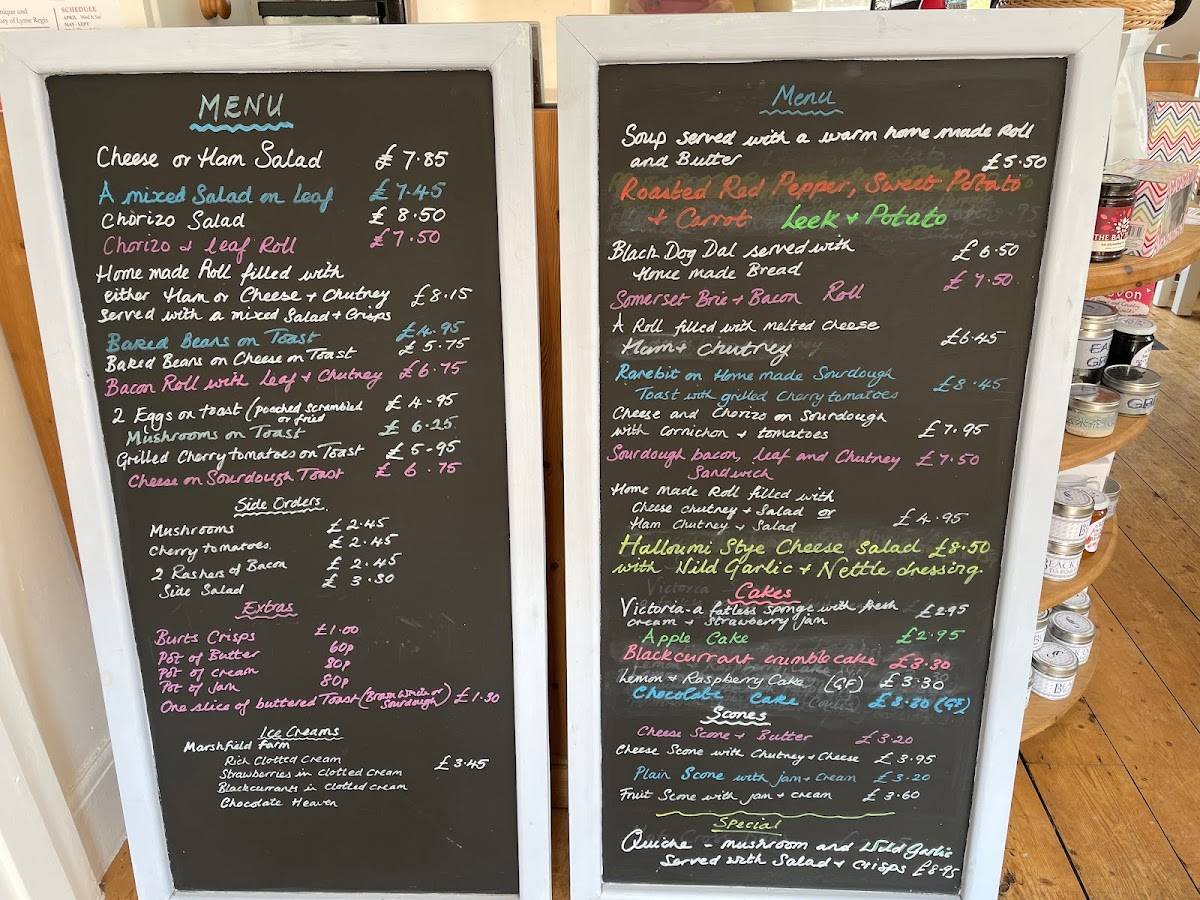 nique and
ory of Lyme Regis
SCHEDULE
MENU
Cheese or Ham Salad £7.85
A mixed Salad on Leaf £7.45
Chorizo Salad £8.50
Chorizo & Leaf Roll £7.50
Home made Roll filled with
either Ham or Cheese + Chutney £8.15
Served with a mixed Salad + Crisps
Baked Beans on Toast £4.95
Baked Beans on Cheese on Toast £5.75
Bacon Roll with Leaf + Chutney £6.75
2 Eggs on toast (Poached Scrambled £4-95
or fried
Mushrooms on Toast £6.25
Grilled Cherry tomatoes on Toast £5-95
Cheese on Sourdough Toast £6.75
Side Orders
Mushrooms £2.45
Cherry tomatoes. £2.45
2 Rashers of Bacon £2.45
Side Salad £3.50
Extras
Burts Crisps £1.00
Pot of Butter 60p
Pot of cream 80p
Pot of Jam 80p
One slice of buttered Toast (Brown White or £1.30
Sourdough)
Ice Creams
Marshfield Farm
Rich Clotted Cream £3.45
Strawberries in clotted cream
Blackcurrants in clotted cream
Chocolate Heaven
Menu
Soup served with a warm home made Roll
and Butter £5.50
Roasted Red Pepper, Sweet Potato
+ Carrot Leek + Potato
Black Dog Dal served with £6.50
Home made Bread
Somerset Brie + Bacon Roll £7.50
A Roll filled with melted cheese
Ham + Chutney £6.45
Rarebit on Home made Sourdough £8.45
Toast with grilled Cherry tomatoes
Cheese and Chorizo on Sourdough
with Cornichon + tomatoes £7.95
Sourdough bacon, leaf and Chutney £7.50
Sandwich
Home Made Roll filled with
Cheese chutney + Salad or £4.95
Ham Chutney + Salad
Halloumi Stye Cheese Salad £8.50
with Wild Garlic + Nettle dressing
Cakes
Victoria - a fatless sponge with fresh £2.95
cream + strawberry jam
Apple Cake £2.95
Blackcurrant crumble cake £3.30
Lemon + Raspberry Cake (GF) £3.30
Chocolate Cake £3.30 (GF)
Scones
Cheese Scone + Butter £3.20
Cheese Scone with Chutney + Cheese £3.95
Plain Scone with jam + cream £3.20
Fruit Scone with jam + cream £3.60
Special
Quiche - mushroom and Wild Garlic
Served with Salad + crisps £8.95
THE BAY